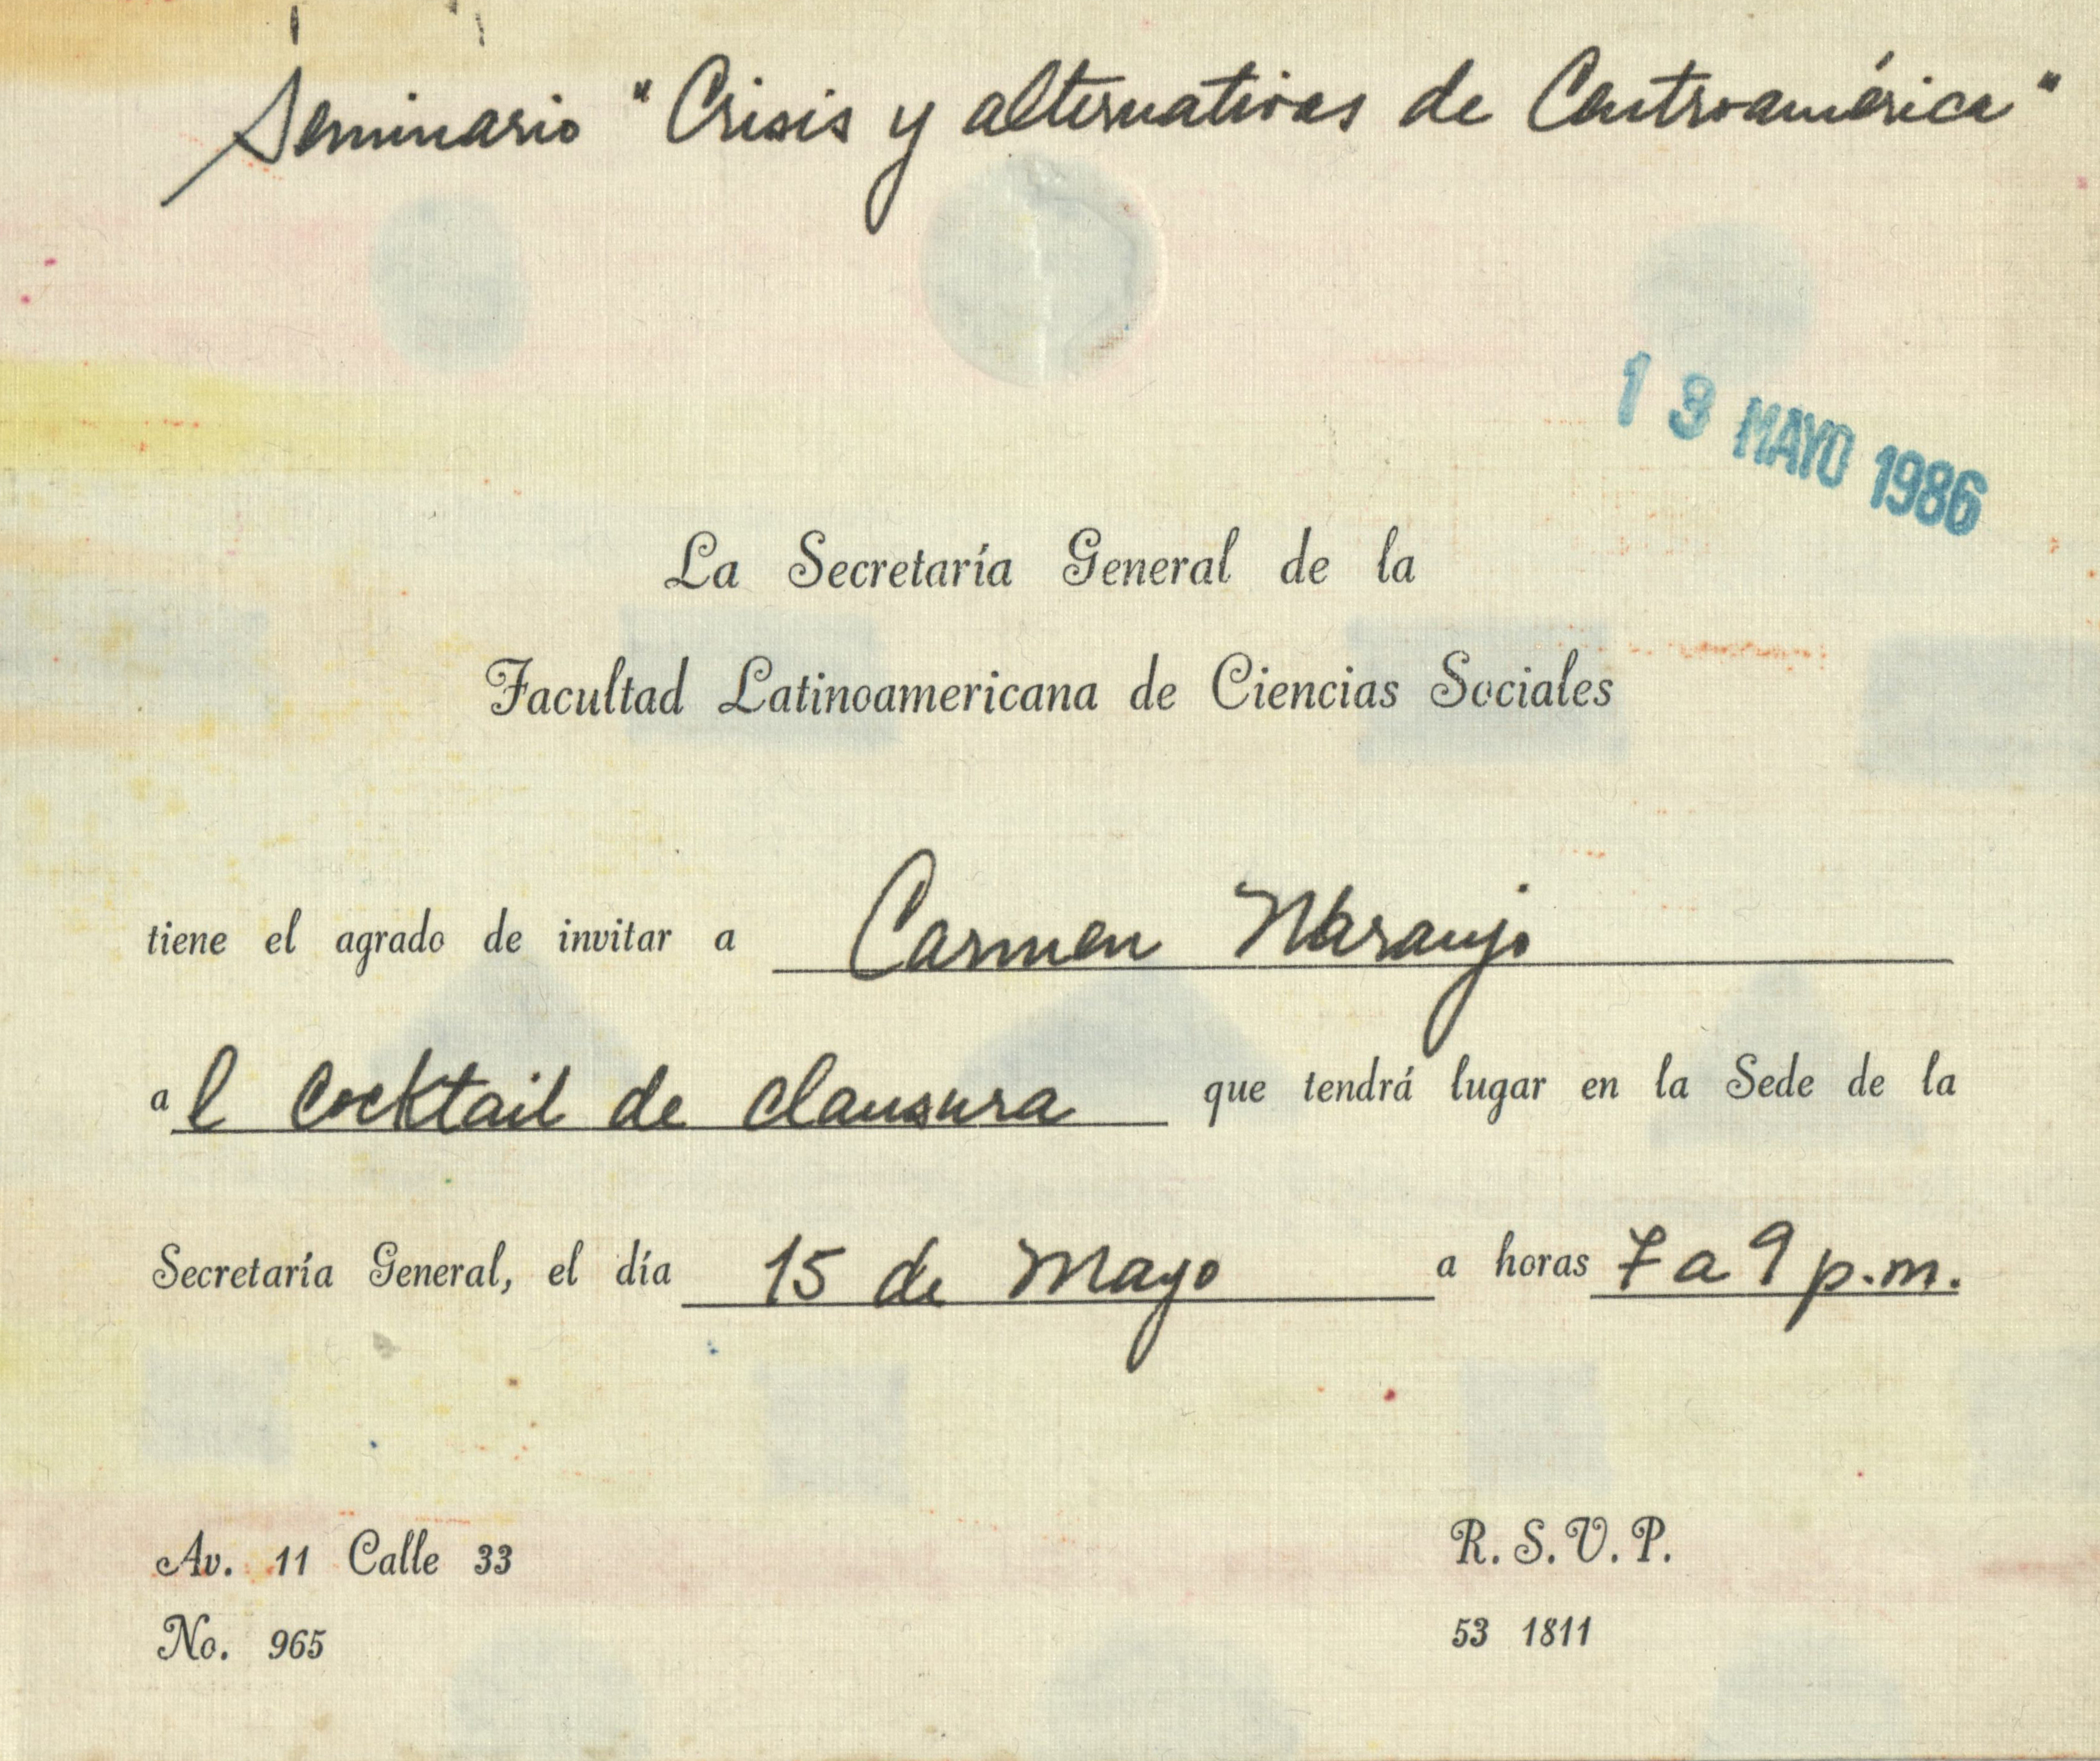 Seminario "Crisis y alternativas de Centroamérica"
13 MAYO 1986
La Secretaría General de la
Facultad Latinoamericana de Ciencias Sociales
tiene el agrado de invitar a Carmen Naranjo
al Cocktail de clausura que tendrá lugar en la Sede de la
Secretaría General, el día 15 de Mayo a horas 7 a 9 p.m.
Av. 11 Calle 33
R. S. V. P.
No. 965
53 1811